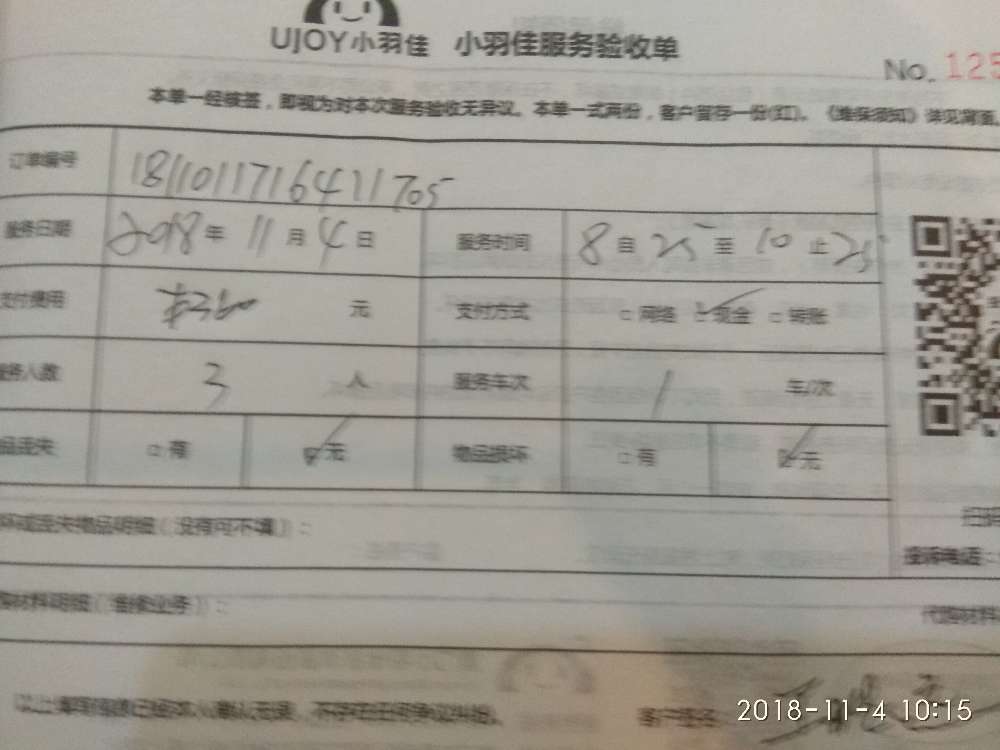 UJOY小羽佳 小羽佳服务验收单
No. 125
本单一经被签，即视为对本次服务验收无异议。本单一式两份，客户留存一份(红)。《维保须知》详见背面。
订单编号 1811011716411705
服务日期 2018年 11月 4日 服务时间 8自25至10止25
支付费用 元 支付方式 □网络 ☑现金 □转账
服务人数 3 人 服务车次 1 车/次
品丢失 □有 ☑无 物品损坏 □有 ☑无
坏或丢失物品明细（没有可不填）：
扫码
投诉电话：
购材料明细（维修业务）：
代购材料
以上填写信息已经本人确认无误，不存在任何争议纠纷。 客户签名：
2018-11-4 10:15